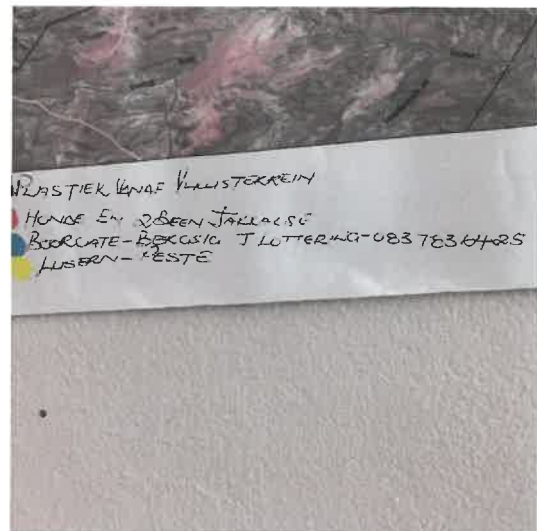 PLASTIEK VANAF VULLISTERREIN
HONDE EN 2BEEN JAKKALSE
BOORGATE-BERGSIG J LOTTERING-083 783 6425
LUSERN-PESTE